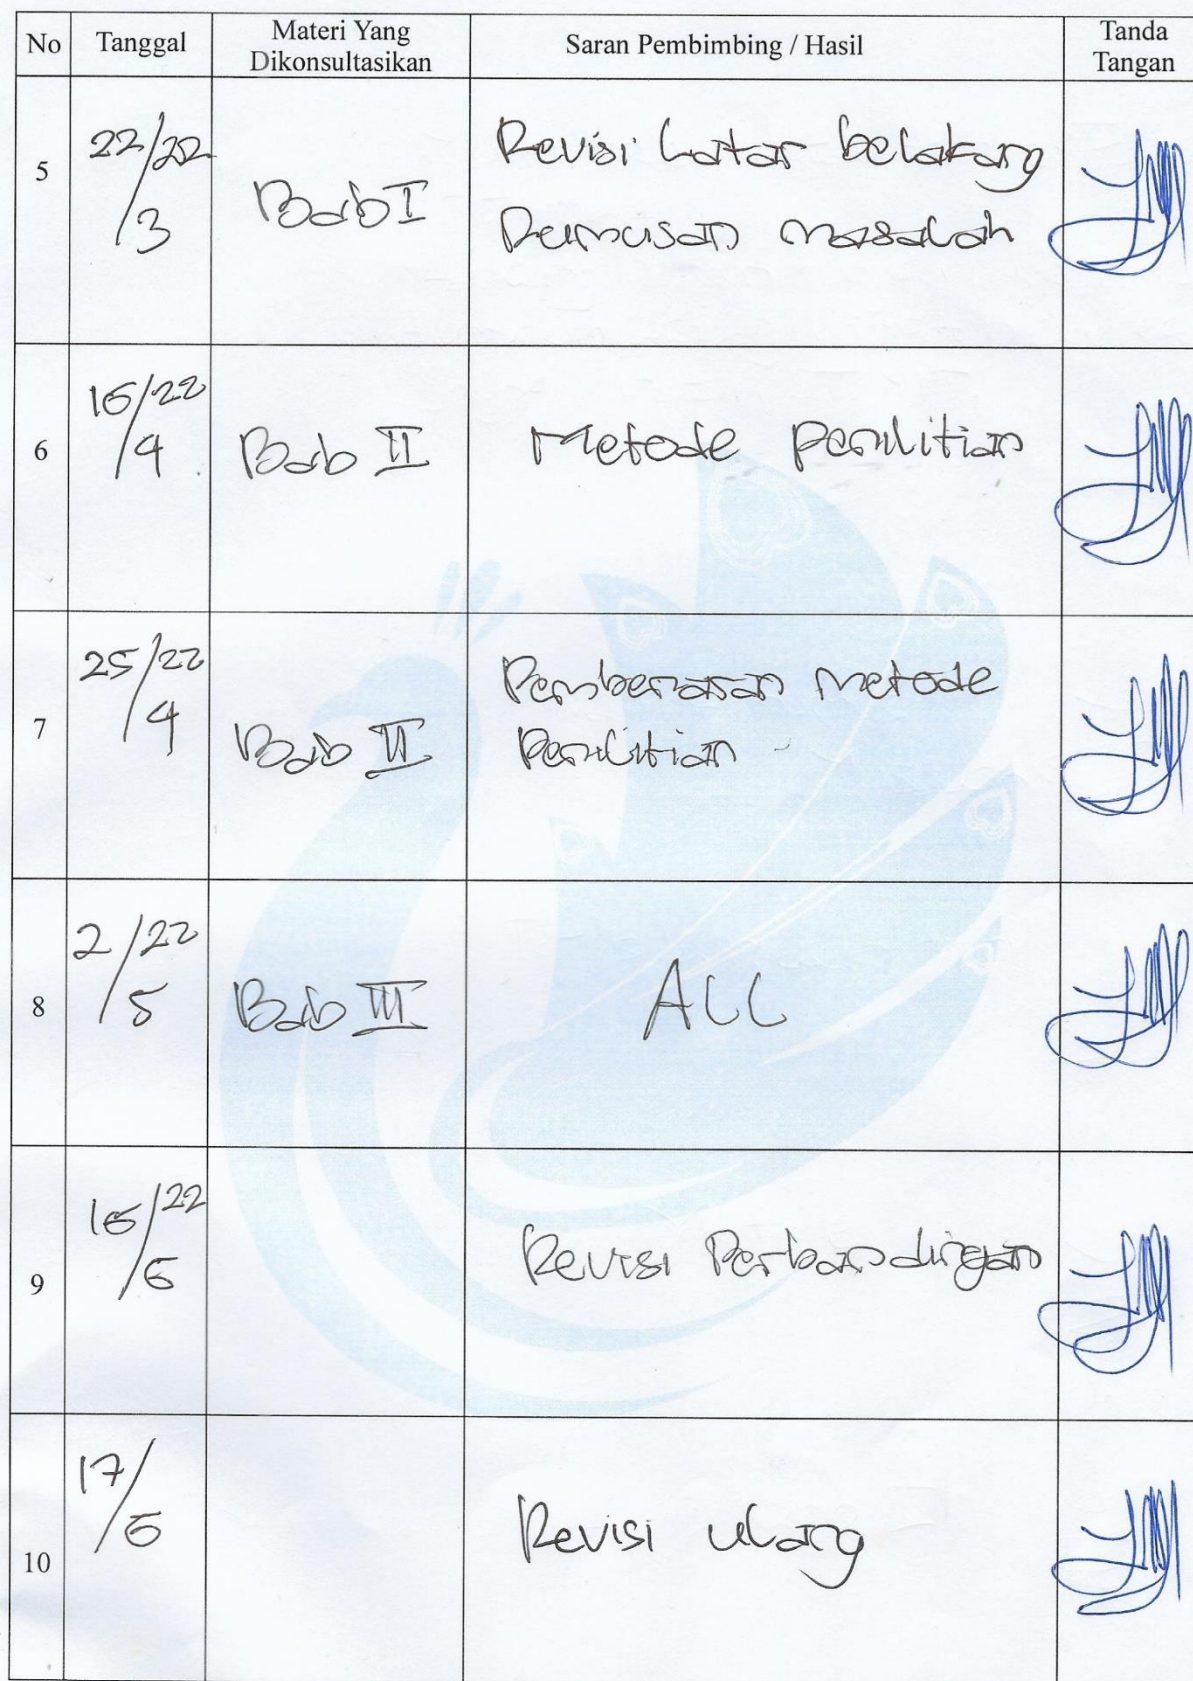 No Tanggal Materi Yang Dikonsultasikan Saran Pembimbing / Hasil Tanda Tangan
5 22/22/3 Bab I Revisi Latar belakang
Rumusan masalah
6 16/22/4 Bab II Metode penilitian
7 25/22/4 Bab II Pembenaran metode
Penilitian
8 2/22/5 Bab III ACC
9 16/22/6 Revisi Perbandingan
10 17/6 Revisi ulang